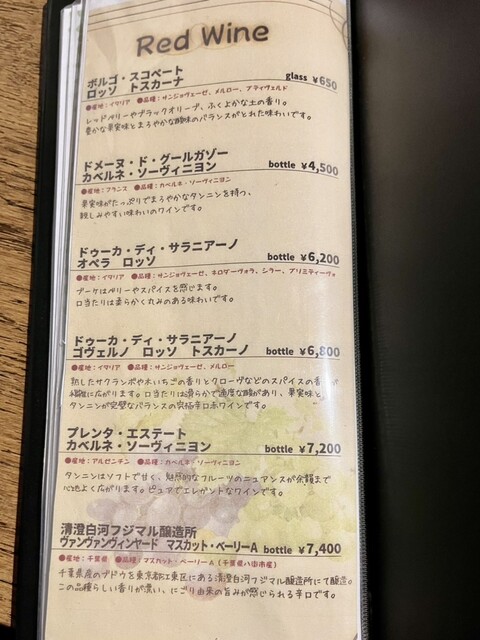 Red Wine
ボルゴ・スコペート
ロッソ トスカーナ
glass ¥650
●産地：イタリア ●品種：サンジョヴェーゼ、メルロー、プティヴェルド
レッドベリーやブラックオリーブ、ふくよかな土の香り。
豊かな果実味とまろやかな酸味のバランスがとれた味わいです。
ドメーヌ・ド・グールガゾー
カベルネ・ソーヴィニヨン
bottle ¥4,500
●産地：フランス ●品種：カベルネ・ソーヴィニヨン
果実味がたっぷりでまろやかなタンニンを持つ、
親しみやすい味わいのワインです。
ドゥーカ・ディ・サラニアーノ
オペラ ロッソ
bottle ¥6,200
●産地：イタリア ●品種：サンジョヴェーゼ、ネロダーヴォラ、シラー、プリミティーヴォ
ブーケはベリーやスパイスを感じます。
口当たりは柔らかく丸みのある味わいです。
ドゥーカ・ディ・サラニアーノ
ゴヴェルノ ロッソ トスカーノ
bottle ¥6,800
●産地：イタリア ●品種：サンジョヴェーゼ、メルロー
熟したサクランボや木いちごの香りとクローヴなどのスパイスの香りが
複雑に広がります。口当たりは滑らかで適度な酸があり、果実味と
タンニンが完璧なバランスの究極辛口赤ワインです。
プレンタ・エステート
カベルネ・ソーヴィニヨン
bottle ¥7,200
●産地：アルゼンチン ●品種：カベルネ・ソーヴィニヨン
タンニンはソフトで甘く、魅惑的なフルーツのニュアンスが余韻まで
心地よく広がります。ピュアでエレガントなワインです。
清澄白河フジマル醸造所
ヴァンヴァンヴィンヤード マスカット・ベーリーA
bottle ¥7,400
●産地：千葉県 ●品種：マスカット・ベーリーA（千葉県八街市産）
千葉県産のブドウを東京都江東区にある清澄白河フジマル醸造所にて醸造。
この品種らしい香りが漂い、にごり由来の旨みが感じられる辛口です。